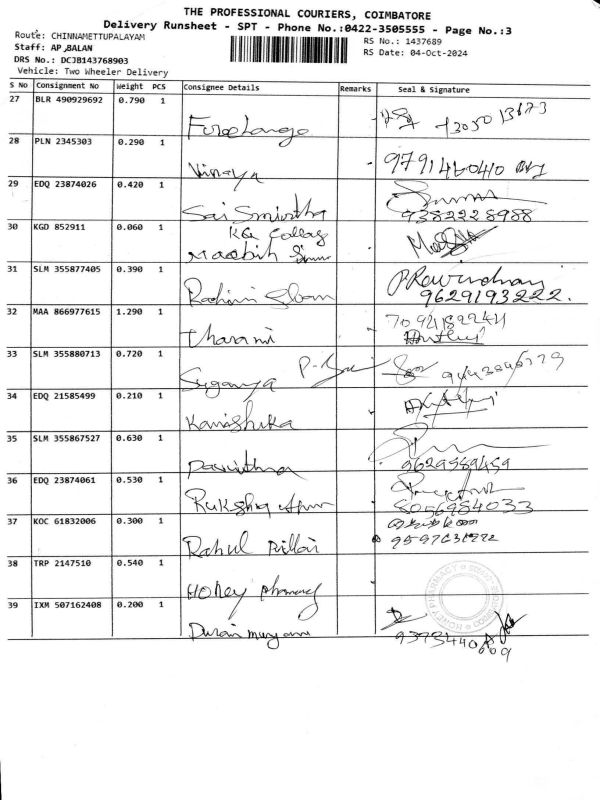 THE PROFESSIONAL COURIERS, COIMBATORE
Delivery Runsheet - SPT - Phone No.:0422-3505555 - Page No.:3
Route: CHINNAMETTUPALAYAM
RS No.: 1437689
Staff: AP,BALAN
RS Date: 04-Oct-2024
DRS No.: DCJB143768903
Vehicle: Two Wheeler Delivery
S No Consignment No Weight PCS Consignee Details Remarks Seal & Signature
27 BLR 490929692 0.790 1
28 PLN 2345303 0.290 1
Vinaya
29 EDQ 23874026 0.420 1
Sai Smirtha 9382228988
30 KGD 852911 0.060 1
31 SLM 355877405 0.390 1
9629193222.
32 MAA 866977615 1.290 1
Tharani 7094182244
33 SLM 355880713 0.720 1
Suganya
34 EDQ 21585499 0.210 1
Kanishika
35 SLM 355867527 0.630 1
Pavithra 9629989459
36 EDQ 23874061 0.530 1
8056984033
37 KOC 61832006 0.300 1
Rahul Pillai
38 TRP 2147510 0.540 1
Honey pharmacy
HONEY PHARMACY
39 IXM 507162408 0.200 1
Durai murugan